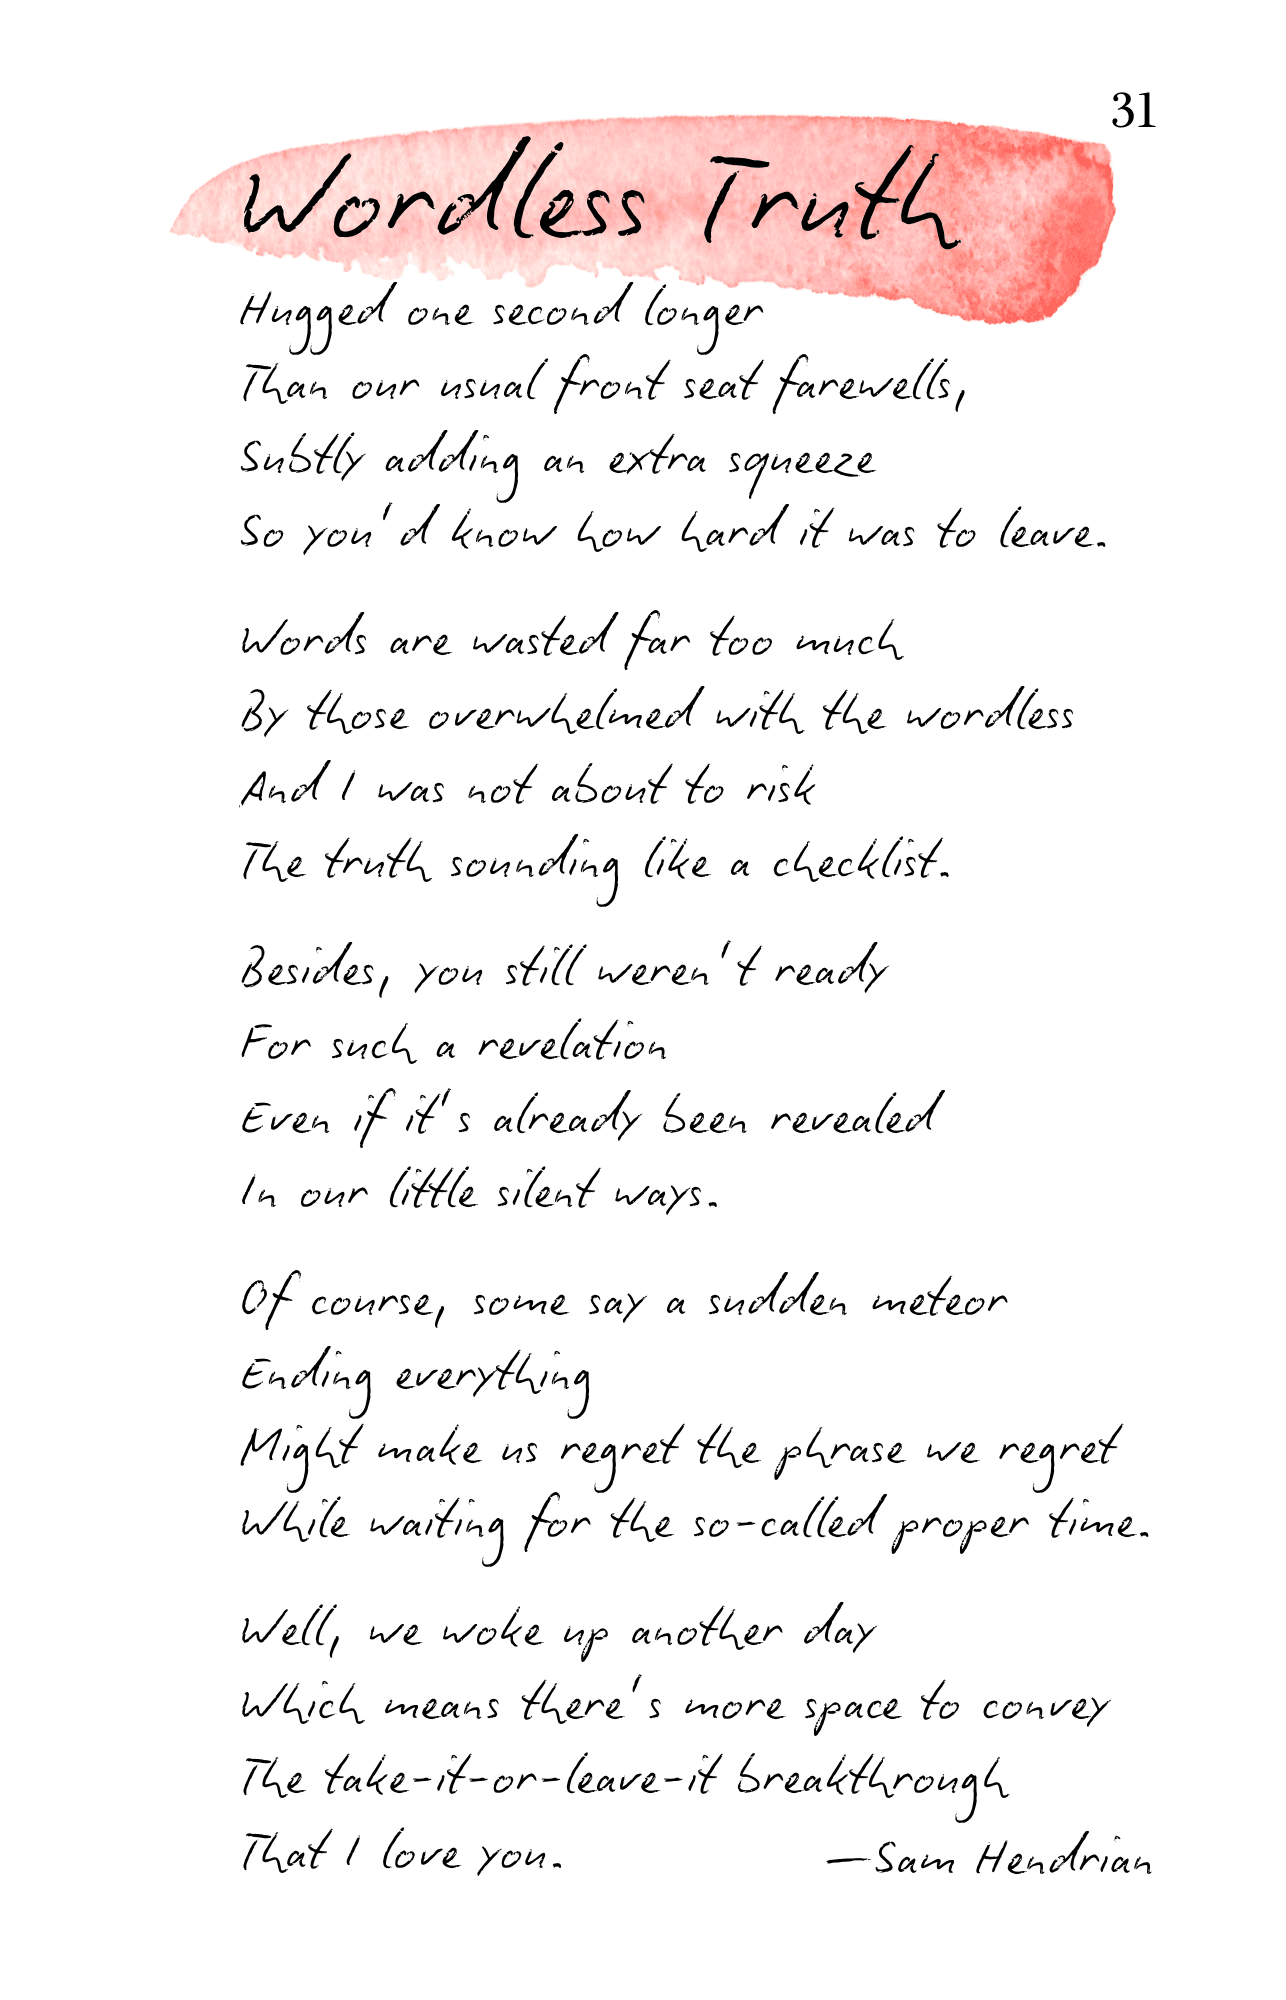 31
Wordless Truth
Hugged one second longer
Than our usual front seat farewells,
Subtly adding an extra squeeze
So you'd know how hard it was to leave.
Words are wasted far too much
By those overwhelmed with the wordless
And I was not about to risk
The truth sounding like a checklist.
Besides, you still weren't ready
For such a revelation
Even if it's already been revealed
In our little silent ways.
Of course, some say a sudden meteor
Ending everything
Might make us regret the phrase we regret
While waiting for the so-called proper time.
Well, we woke up another day
Which means there's more space to convey
The take-it-or-leave-it breakthrough
That I love you.
—Sam Hendrian